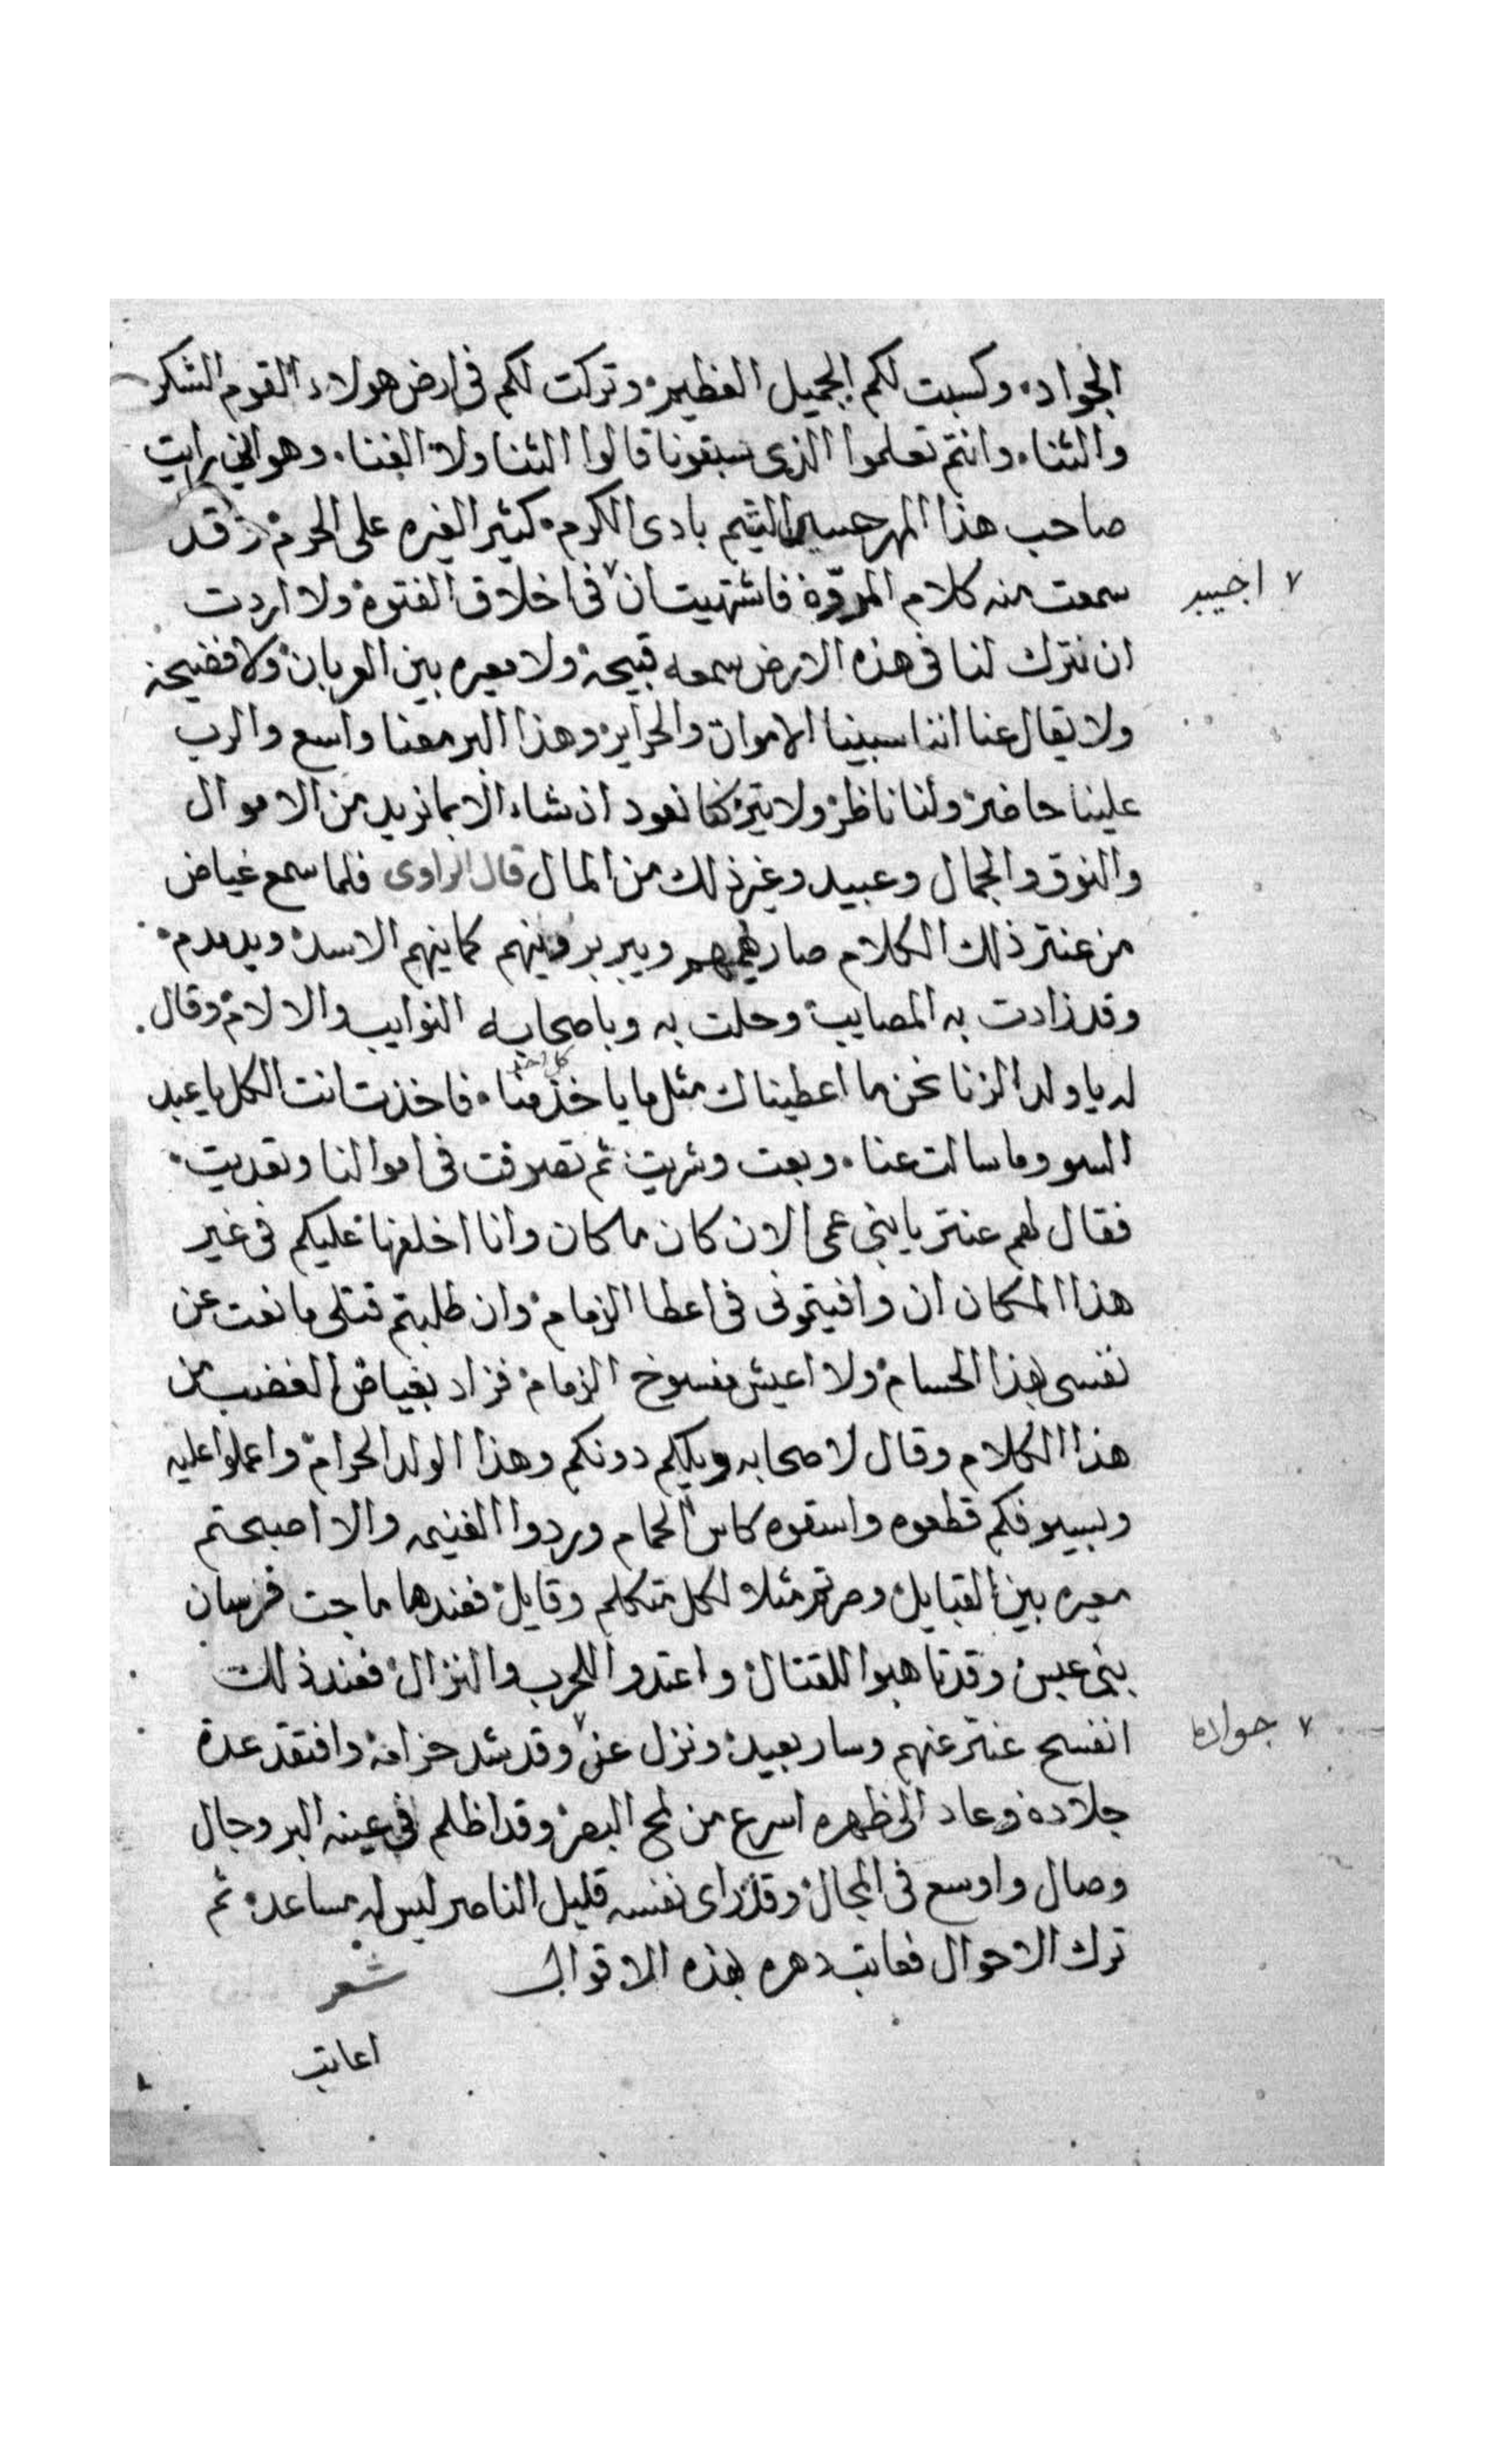 الجواد، وكسبت لكم الجميل العظيم، وتركت لكم فى ارض هولاء القوم الشكر
والثناء، وانتم تعلموا الذى سبقونا قالوا الثنا ولا الغنا، وهو انى رايت
صاحب هذا المهر حسن الشيم بادى الكرم، كثير الغيره على الحرم، وقد
سمعت منه كلام المروّة فاشتهيت ان٧ فى اخلاق الفتوة ولا اردت
٧ اجيبه
ان نترك لنا فى هذه الارض سمعه قبيحة ولا معيره بين العربان ولا فضيحة
ولا يقال عنا اننا سبينا الاموات والحراير، وهذا البر معنا واسع والرب
علينا حاضر، ولنا ناظر، ولا بد نعود ان شاء الا بما نريد من الاموال
والنوق والجمال وعبيد وغير ذلك من المال قال الراوى فلما سمع غياض
من عنتر ذلك الكلام صار يهمهم ويبربر وينهم كما ينهم الاسد، ويدمدم،
وقد زادت به المصايب، وحلت به وباصحابه النوايب والالام، وقال
له يا ولد الزنا نحن ما اعطيناك مثل ما ياخذ كل احد منا، فاخذت انت الكل يا عبد
السو وما سالت عنا، وبعت وشريت، ثم تصرفت فى اموالنا وتعديت،
فقال لهم عنتر يا بنى عمى الان كان ما كان وانا اخلفها عليكم فى غير
هذا المكان ان وافيتمونى فى اعطا الزمام، وان طلبتم قتلى مانعت عن
نفسى بهذا الحسام، ولا اعيش مفسوخ الزمام، فزاد بغياض الغضب من
هذا الكلام وقال لاصحابه ويلكم دونكم وهذا الولد الحرام، واعملوا عليه
وبسيوفكم قطعوه واسقوه كاس الحمام وردوا الغنيمه والا اصبحتم
معيره بين القبايل، وصرتم مثلا لكل متكلم وقايل، فعندها ماجت فرسان
بنى عبس، وقد تاهبوا للقتال، واعتدوا للحرب والنزال، فعند ذلك
انفسح عنتر عنهم وسار بعيد، ونزل عن٧ وقد شد حزامه، وافتقد عدة
٧ جواده
جلاده، وعاد الى ظهره اسرع من لمح البصر، وقد اظلم فى عينه البر وجال
وصال واوسع فى المجال، وقد راى نفسه قليل الناصر ليس له مساعد، ثم
ترك الاحوال فعاتب دهره بهذه الاقوال شعر
اعاتب